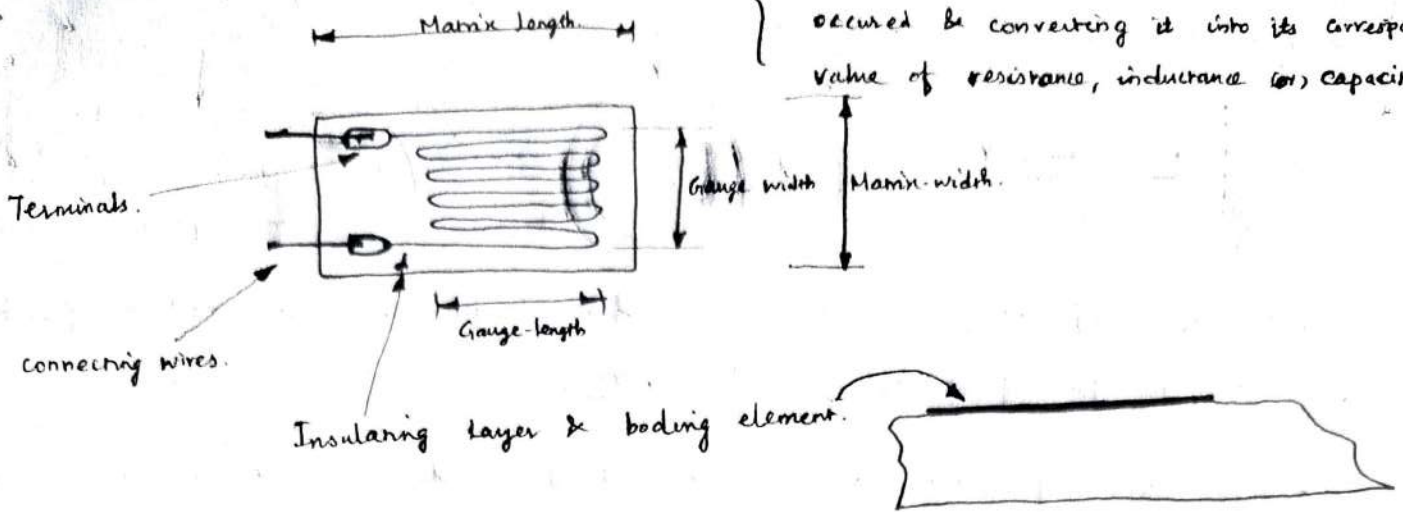 Matrix length.
occured & converting it into its
value of resistance, inductance (or)
Terminals.
Gauge width
Matrix-width.
Gauge-length
connecting wires.
Insulating layer & boding element.